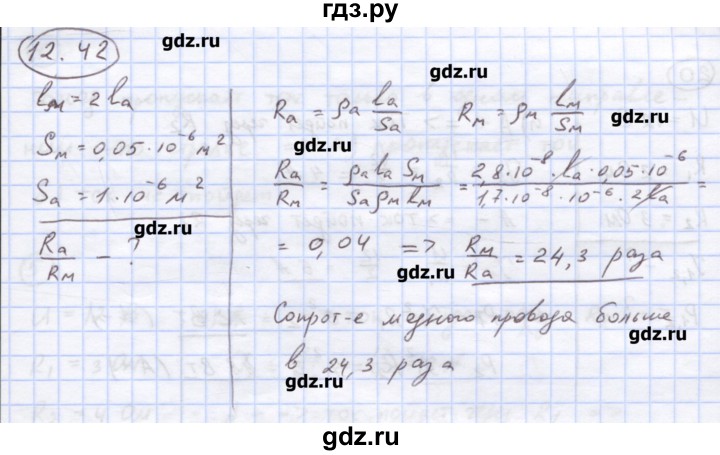 гдз.ру
12.42
gdz.ru
lм = 2 lа
Sм = 0,05·10⁻⁶ м²
Sа = 1·10⁻⁶ м²
gdz.ru
Rа/Rм - ?
gdz.ru
Rа = ρа lа/Sа   Rм = ρм lм/Sм
gdz.ru
Rа/Rм = ρа lа Sм / Sа ρм lм = 2,8·10⁻⁸·lа·0,05·10⁻⁶ / 1,7·10⁻⁸·10⁻⁶·2lа =
= 0,04 => Rм/Rа = 24,3 раза
gdz.ru
Сопрот-е медного провода больше
в 24,3 раза
gdz.ru
gdz.ru